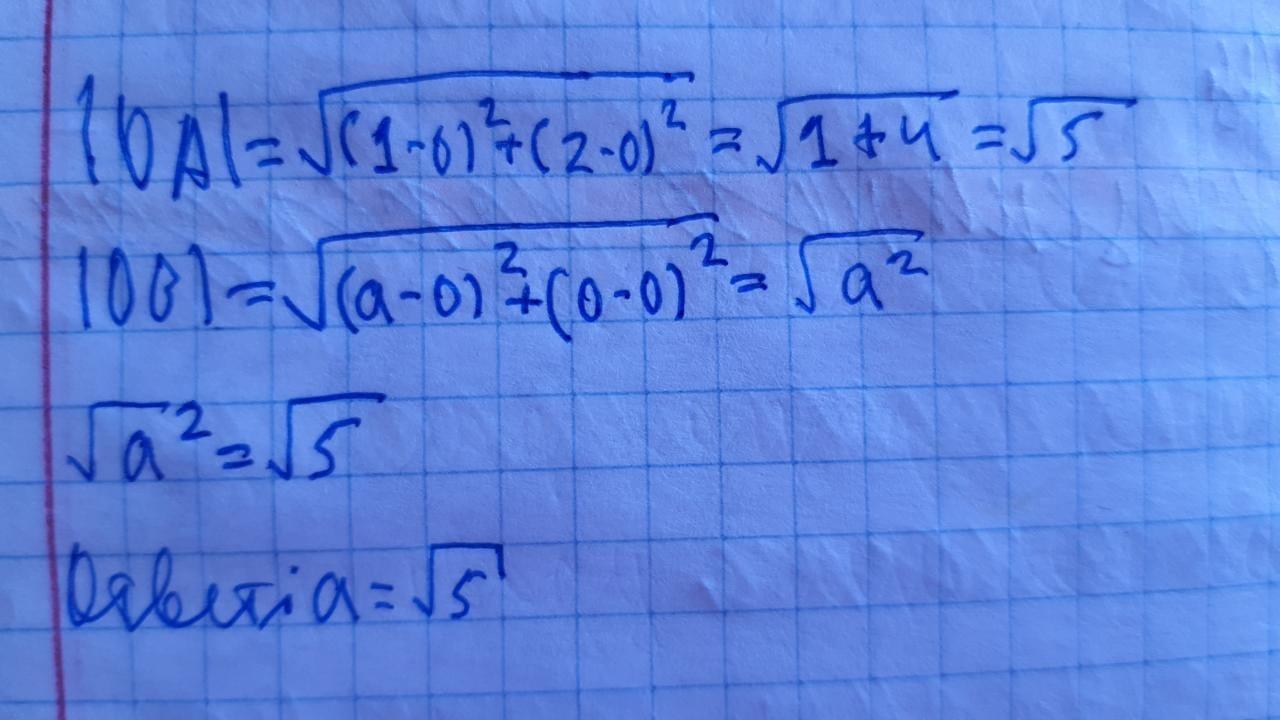 |OA| = √((1-0)²+(2-0)²) = √(1+4) = √5
|OB| = √((a-0)²+(0-0)²) = √(a²)
√a² = √5
Ответ: a = √5